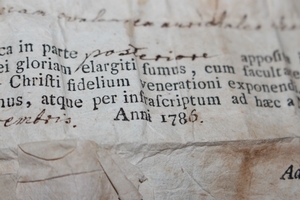 ca in parte posteriore apposit
ei gloriam elargiti sumus, cum facult
Christi fidelium venerationi exponend
nus, atque per infrascriptum ad hæc a
embris. Anni 1786.
Ad